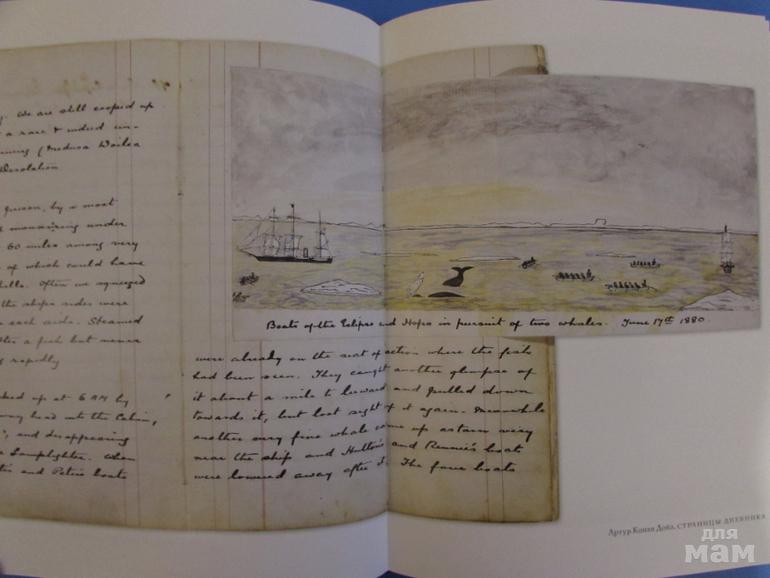 We are still cooped up
a rare & indeed un-
(Medusa
Desolation
by a most
manoeuvring under
60 miles among very
of which could have
Often we squeezed
the ships sides were
each side. Steamed
a fish but never
rapidly
up at 6 AM by
head into the Cabin,
and disappearing
Lamplighter. When
and Peters boats
Boats of the Eclipse and Hope in pursuit of two whales. June 17th 1880.
were already on the scent of action where the fish
had been seen. They caught another glimpse of
it about a mile to leeward and pulled down
towards it, but lost sight of it again. Meanwhile
another very fine whale came up astern very
near the ship and Hulton's and Rennie's boat
were lowered away after it. The four boats
Артур Конан Дойл. СТРАНИЦЫ ДНЕВНИКА
для
мам